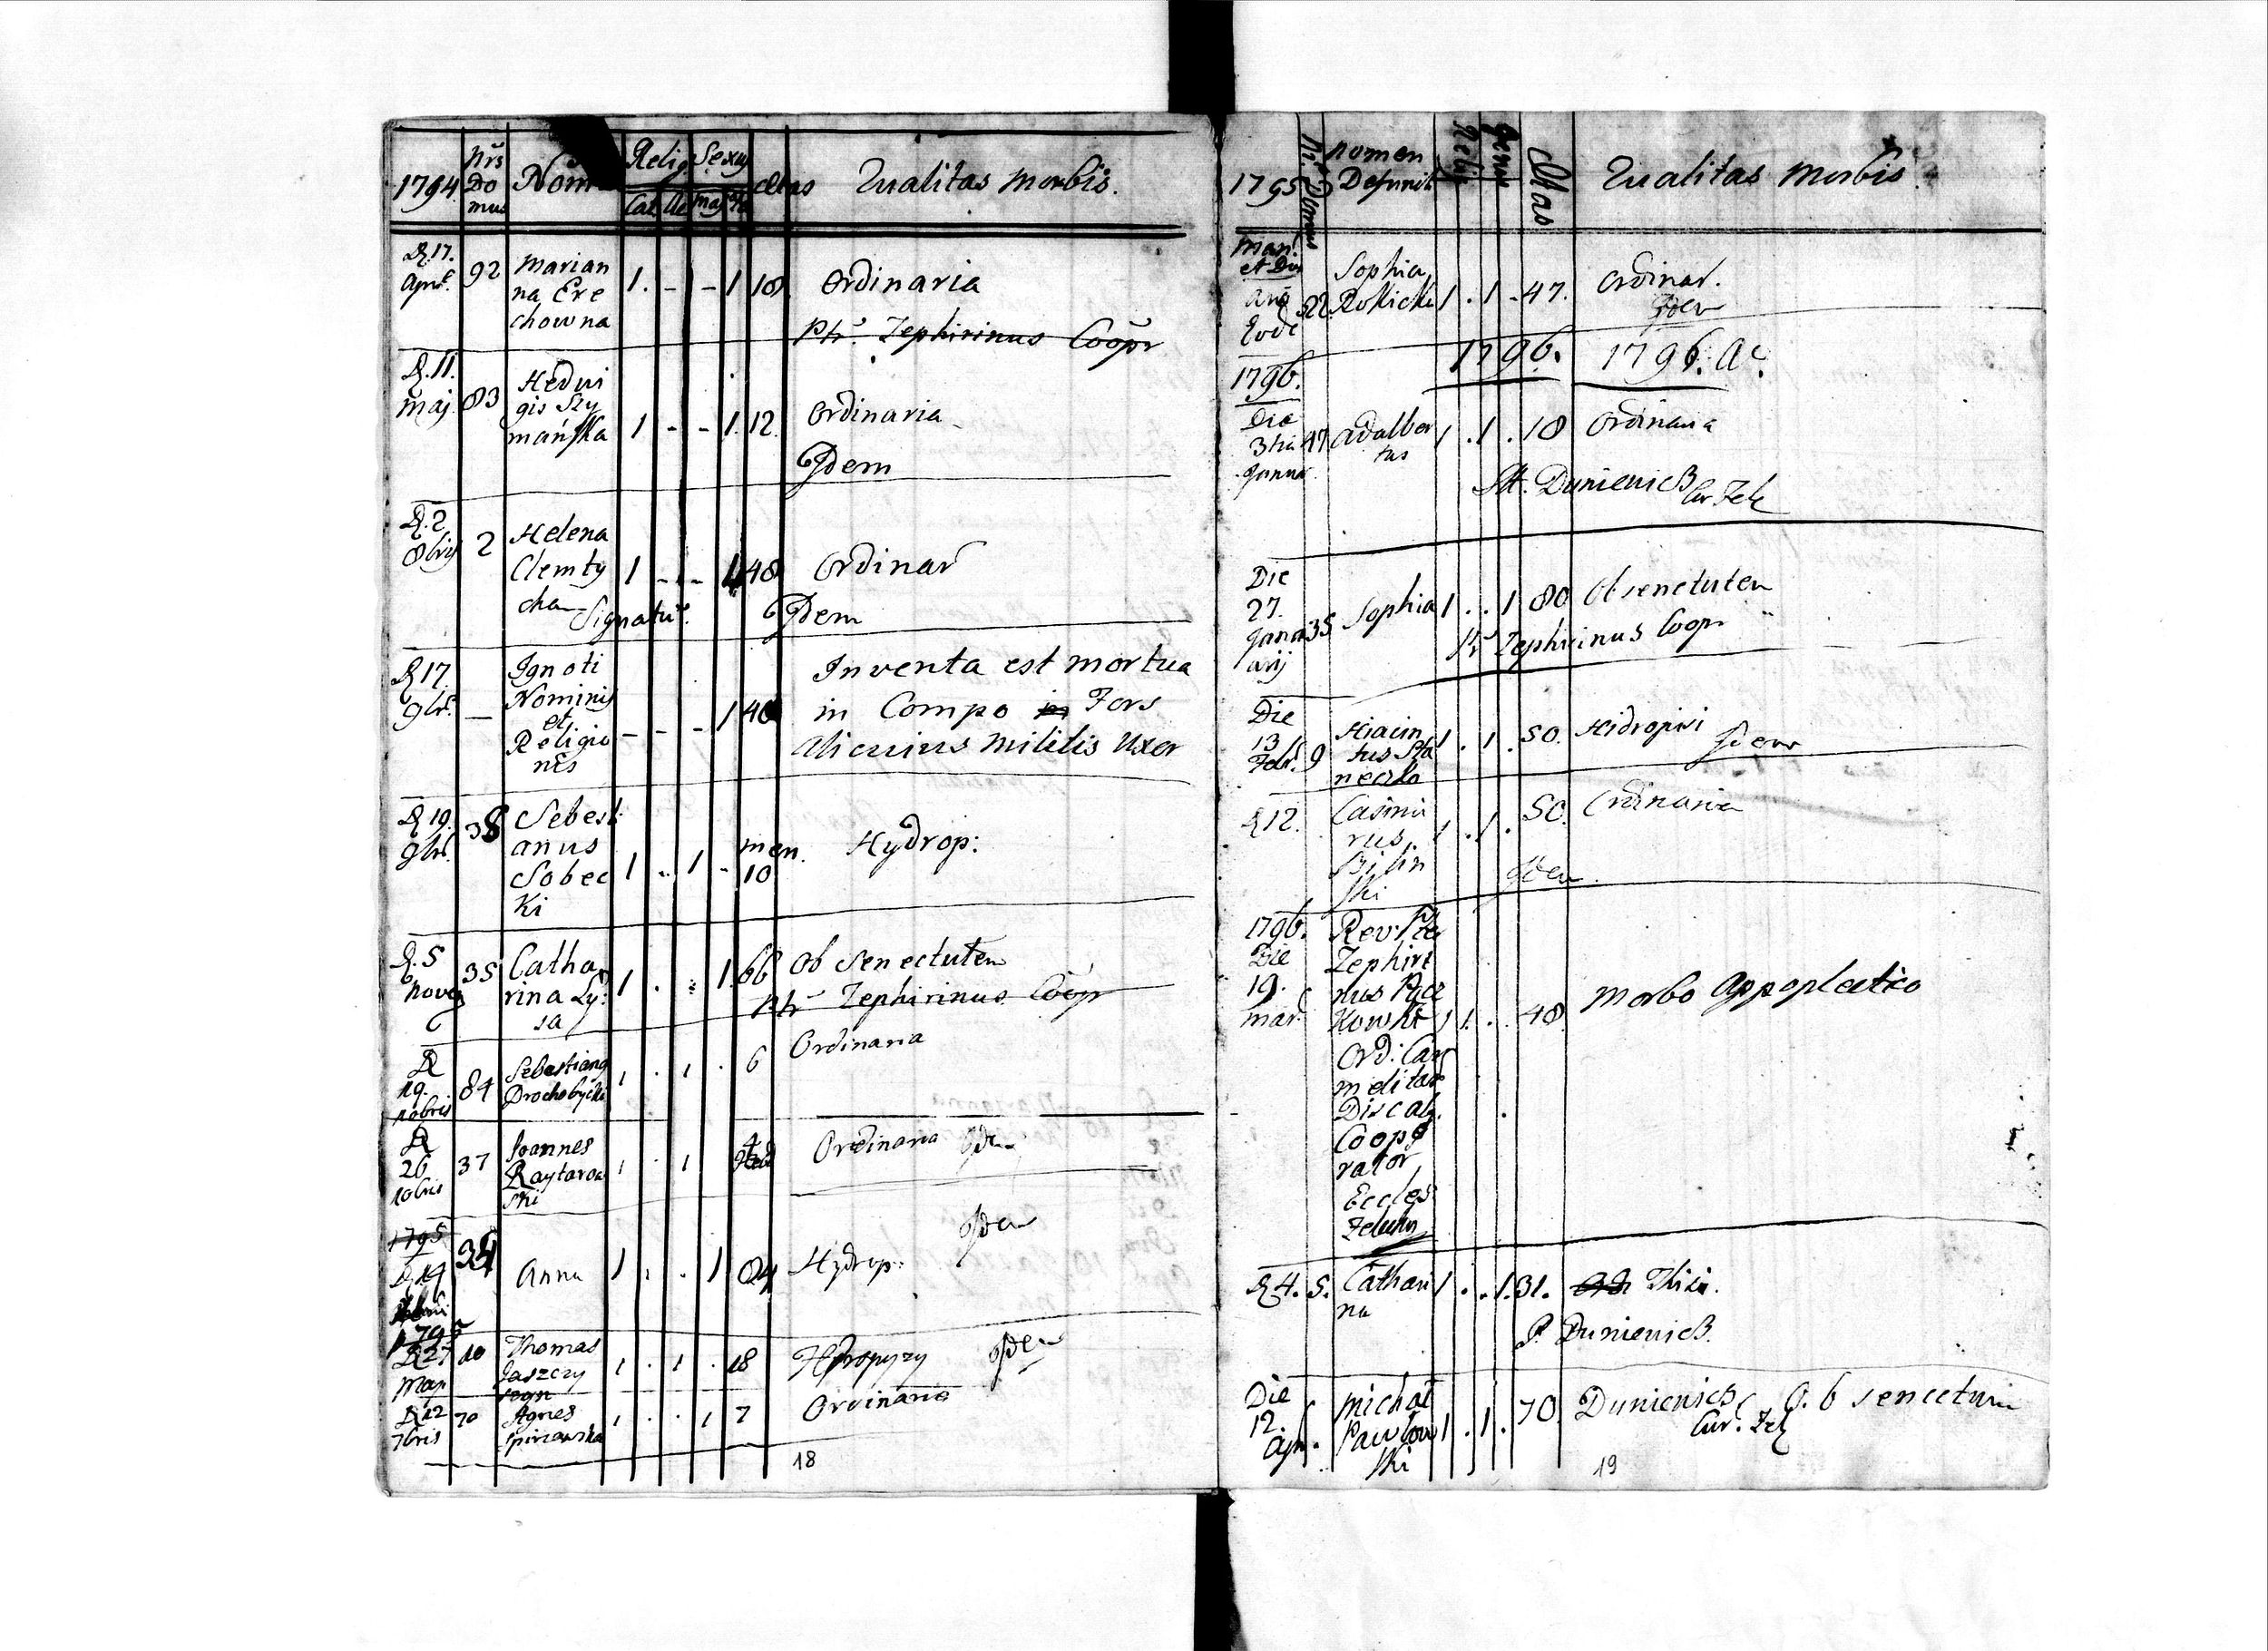 1794. Nrs Domus Nom Relig Sexus Ætas Qualitas Morbis.
Cat Ac Mas Fæ
D. 17. Apr. 92 Marian
na Ere
chowna 1. - - 1 18 Ordinaria
Ptr. Zephirinus Coopr
D. 11. Maj 83 Hedvi
gis Szy
mańska 1 - - 1. 12. Ordinaria
Idem
D. 2 8bris 2 Helena
Clemty
cha 1 - - 1 48 Ordinar
Signatur. Idem
D 17. 9br. - Ignoti
Nominis
et
Religio
nis - - - 1 40 Inventa est mortua
in Compo Fors
Alicuius Militis Uxor
D 19. 9br. 38 Sebesti
anus
Sobec
ki 1 - 1 - men. 10 Hydrop:
D. 5 35 Catha
rina Ly:
sa 1 . 1. 66 Ob Senectutem
Ptr Zephirinus Coopr
D 19. 10bris 84 Sebastianus
Drochobycki 1 . 1 . 6 Ordinaria
D 26 10bris 37 Joannes
Raytarow
ski 1 . 1 4 Ordinaria Idem
1795
34 Anna 1 . . 1 Hydrop: Idem
1795
D 27 Map 10 Thomas
Jaszczy
1 . 1 . 18 Idem
D 12 7bris 70 Agnes
1 . . 1 7 Ordinaria
18
1795 Nr. Domus Nomen
Defuncti Relig Genus Ætas Qualitas Morbis
22 Sophia
Rokicka 1 . 1 - 47. Ordinar.
Idem
1796. 1796. 1796. Ac.
Die
3tia
Januar. 47 Adalber
tus 1 . 1 . 18 Ordinaria
St. Dunienicz Cur. Zel
Die
27.
Janu
arij 35 Sophia 1 . . 1 80 Ob senectutem
Pr Zephirinus Coopr
Die
13
Febr. 9 Hiacin
tus Sta
neczko 1 . 1 . 50. Hidropisi Idem
D 12. Casimi
rus
Bilin
ski 1 . 1 . 50. Ordinaria
Idem
1796.
Die
19.
Mar. Rev. Pter
Zephiri
nus Pącz
kowski
Ord: Car
melitar
Discal.
Coope
rator
Eccles
1 1 . . 48. Morbo Appoplectico
D 4. 5. Cathari
na 1 . . 1. 31. Thisi.
P. Dunienicz.
Die
12 Apr. Michał
Pawłow
ski 1 . 1 . 70. Dunienicz Ob senectum
Cur. Zel
19